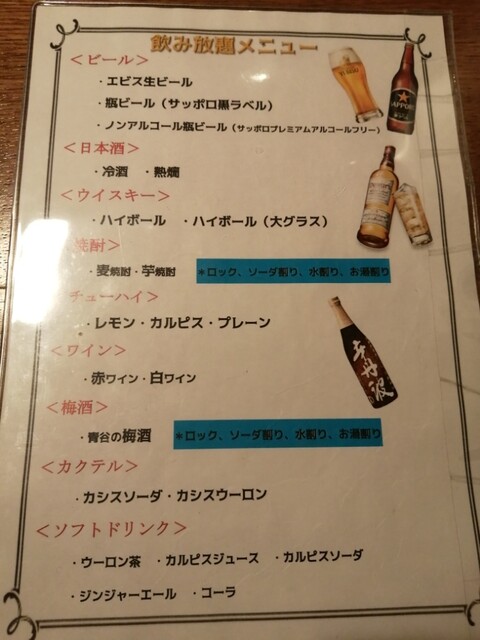 飲み放題メニュー
＜ビール＞
・エビス生ビール
・瓶ビール（サッポロ黒ラベル）
・ノンアルコール瓶ビール（サッポロプレミアムアルコールフリー）
＜日本酒＞
・冷酒　・熱燗
＜ウイスキー＞
・ハイボール　・ハイボール（大グラス）
焼酎＞
・麦焼酎・芋焼酎　＊ロック、ソーダ割り、水割り、お湯割り
チューハイ＞
・レモン・カルピス・プレーン
＜ワイン＞
・赤ワイン・白ワイン
＜梅酒＞
・青谷の梅酒　＊ロック、ソーダ割り、水割り、お湯割り
＜カクテル＞
・カシスソーダ・カシスウーロン
＜ソフトドリンク＞
・ウーロン茶　・カルピスジュース　・カルピスソーダ
・ジンジャーエール　・コーラ
SAPPORO
辛丹波